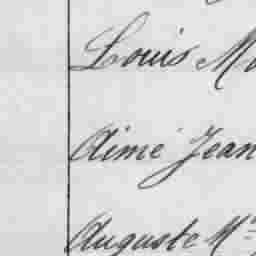 Louis M
Aimé Jean
Auguste M